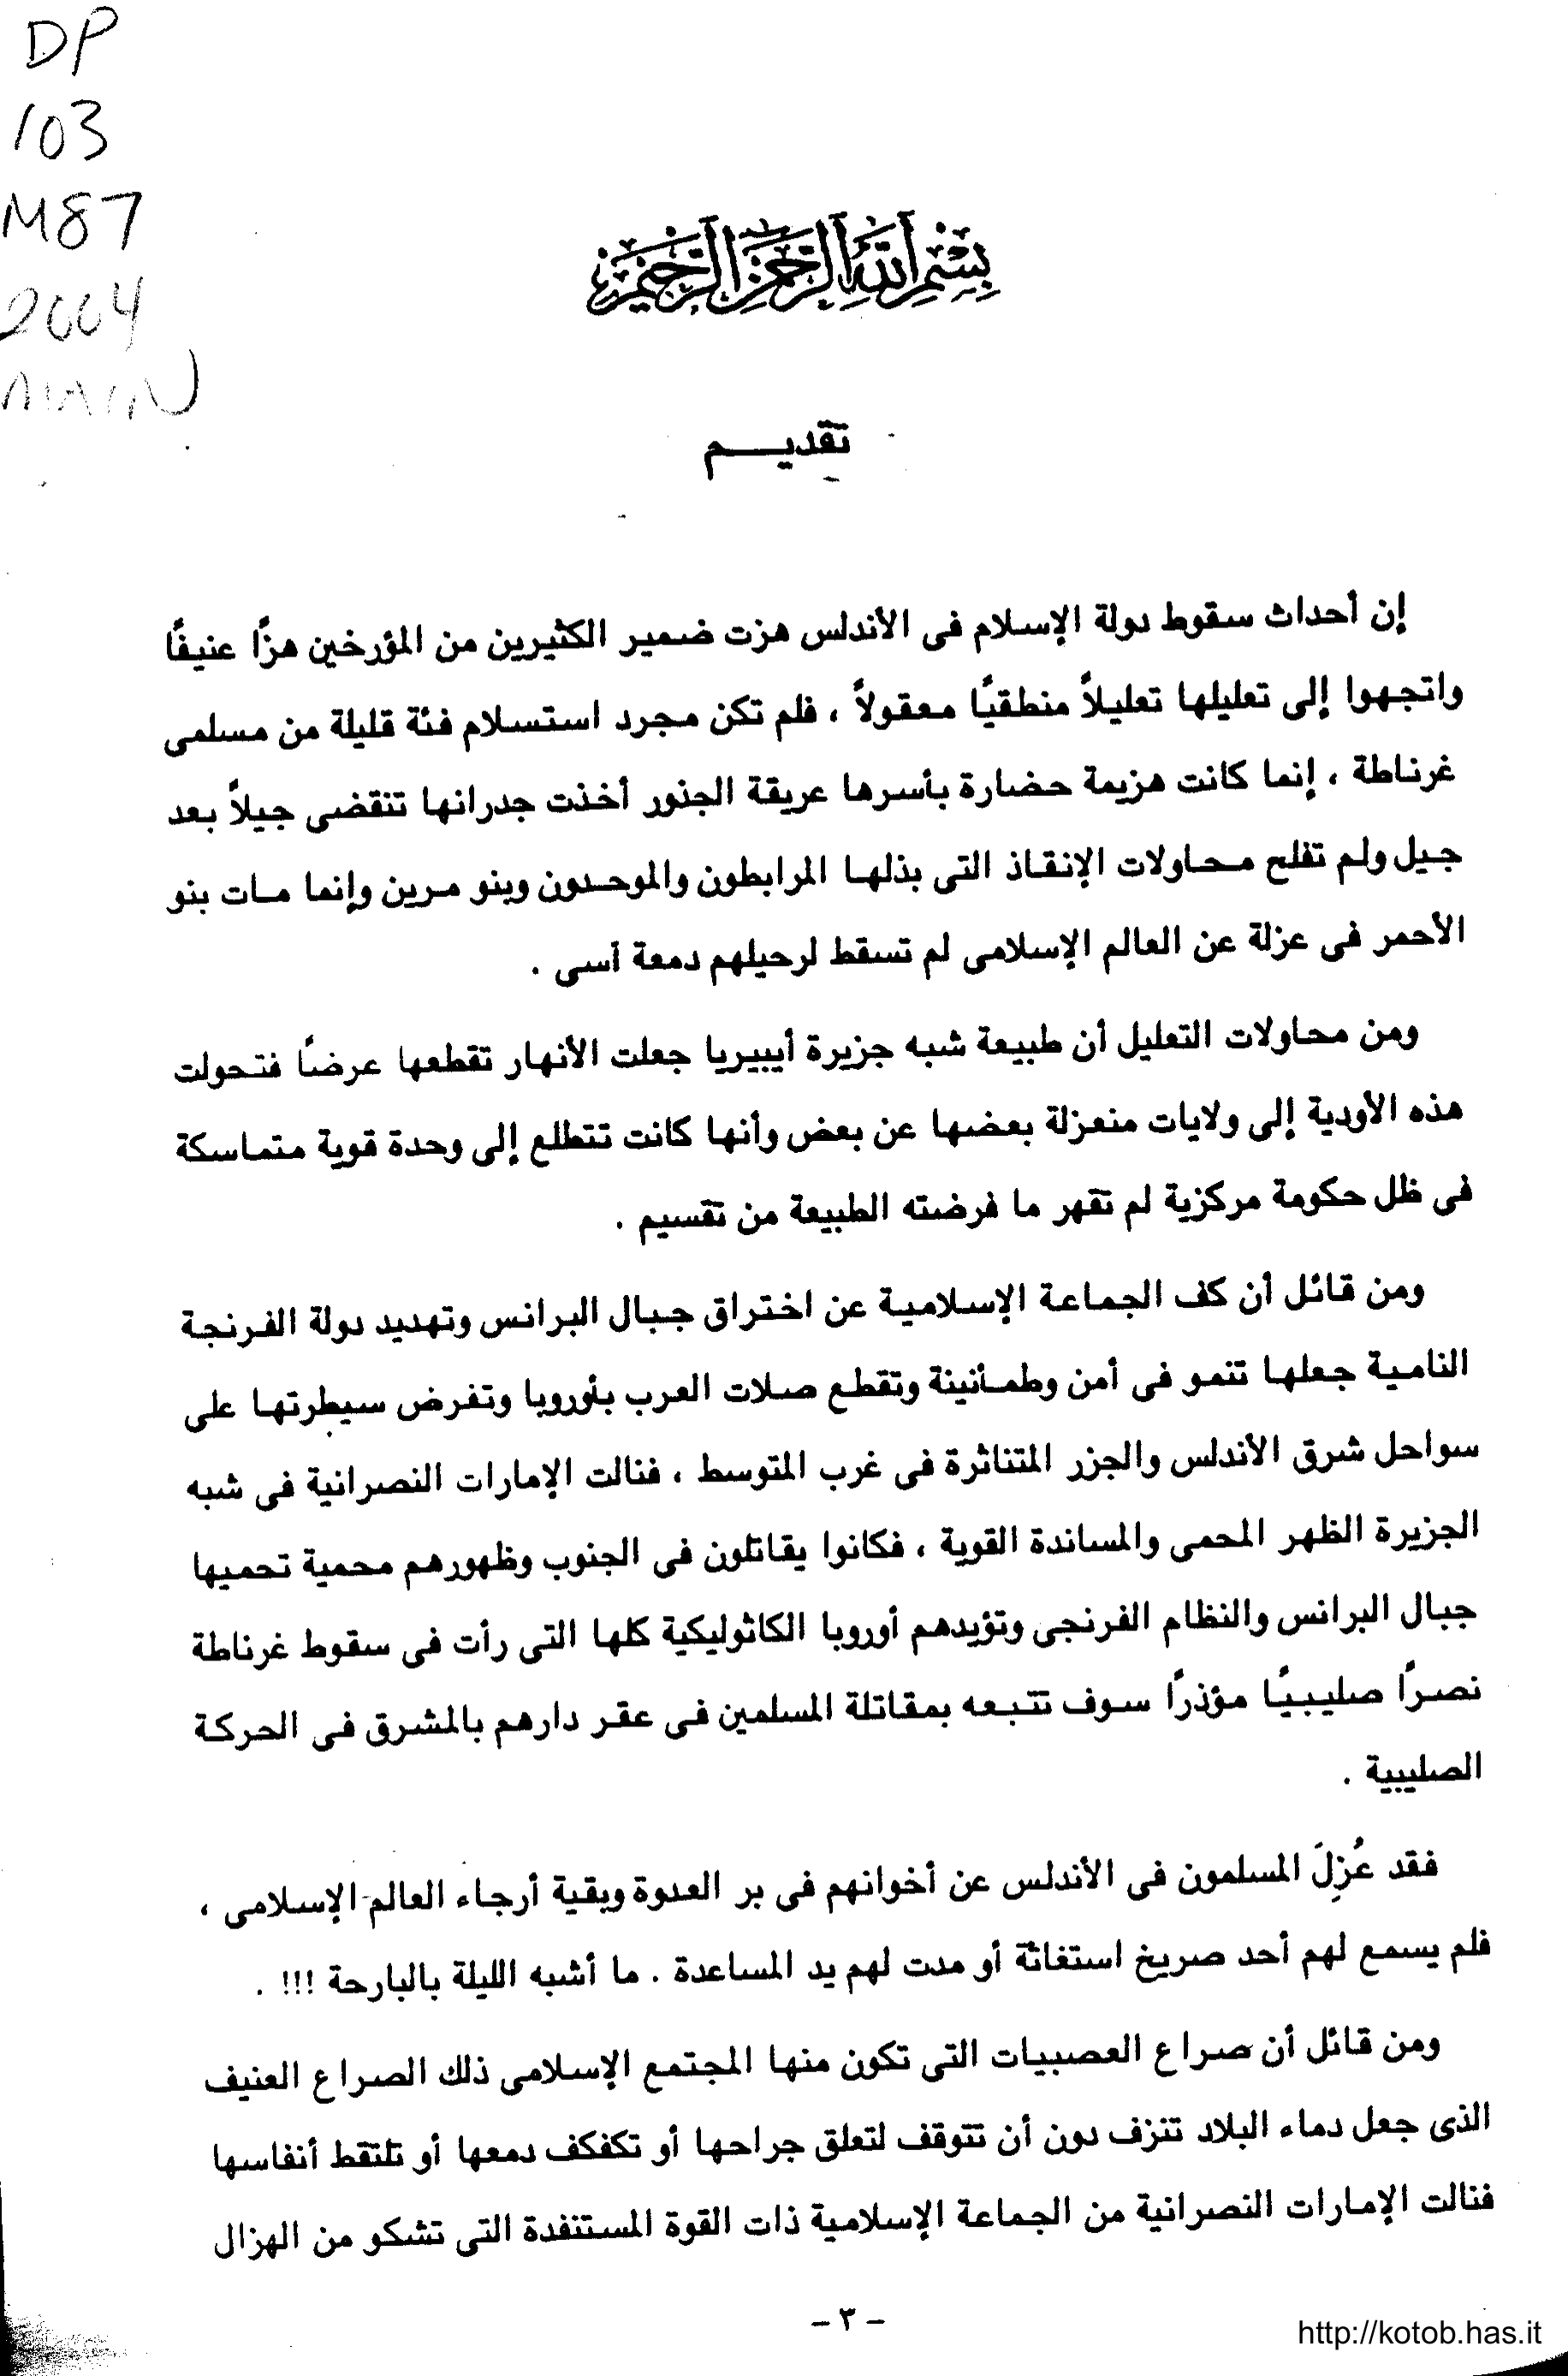 DP
103
M87
2004
MAIN
بسم الله الرحمن الرحيم
تقديـــم
إن أحداث سقوط دولة الإسلام فى الأندلس هزت ضمير الكثيرين من المؤرخين هزًا عنيفًا
واتجهوا إلى تعليلها تعليلاً منطقيًا معقولاً ، فلم تكن مجرد استسلام فئة قليلة من مسلمى
غرناطة ، إنما كانت هزيمة حضارة بأسرها عريقة الجنور أخذت جدرانها تنقضى جيلاً بعد
جيل ولم تفلح محاولات الإنقاذ التى بذلها المرابطون والموحدون وبنو مرين وإنما مات بنو
الأحمر فى عزلة عن العالم الإسلامى لم تسقط لرحيلهم دمعة أسى .
ومن محاولات التعليل أن طبيعة شبه جزيرة أيبيريا جعلت الأنهار تقطعها عرضًا فتحولت
هذه الأودية إلى ولايات منعزلة بعضها عن بعض وأنها كانت تتطلع إلى وحدة قوية متماسكة
فى ظل حكومة مركزية لم تقهر ما فرضته الطبيعة من تقسيم .
ومن قائل أن كف الجماعة الإسلامية عن اختراق جبال البرانس وتهديد دولة الفرنجة
النامية جعلها تنمو فى أمن وطمأنينة وتقطع صلات العرب بأوروبا وتفرض سيطرتها على
سواحل شرق الأندلس والجزر المتناثرة فى غرب المتوسط ، فنالت الإمارات النصرانية فى شبه
الجزيرة الظهر المحمى والمساندة القوية ، فكانوا يقاتلون فى الجنوب وظهورهم محمية تحميها
جبال البرانس والنظام الفرنجى وتؤيدهم أوروبا الكاثوليكية كلها التى رأت فى سقوط غرناطة
نصرًا صليبيًا مؤذرًا سوف تتبعه بمقاتلة المسلمين فى عقر دارهم بالمشرق فى الحركة
الصليبية .
فقد عُزِلَ المسلمون فى الأندلس عن أخوانهم فى بر العدوة وبقية أرجاء العالم الإسلامى ،
فلم يسمع لهم أحد صريخ استغاثة أو مدت لهم يد المساعدة . ما أشبه الليلة بالبارحة !!! .
ومن قائل أن صراع العصبيات التى تكون منها المجتمع الإسلامى ذلك الصراع العنيف
الذى جعل دماء البلاد تنزف دون أن تتوقف لتعلق جراحها أو تكفكف دمعها أو تلتقط أنفاسها
فنالت الإمارات النصرانية من الجماعة الإسلامية ذات القوة المستنفدة التى تشكو من الهزال
- ٣ -
http://kotob.has.it